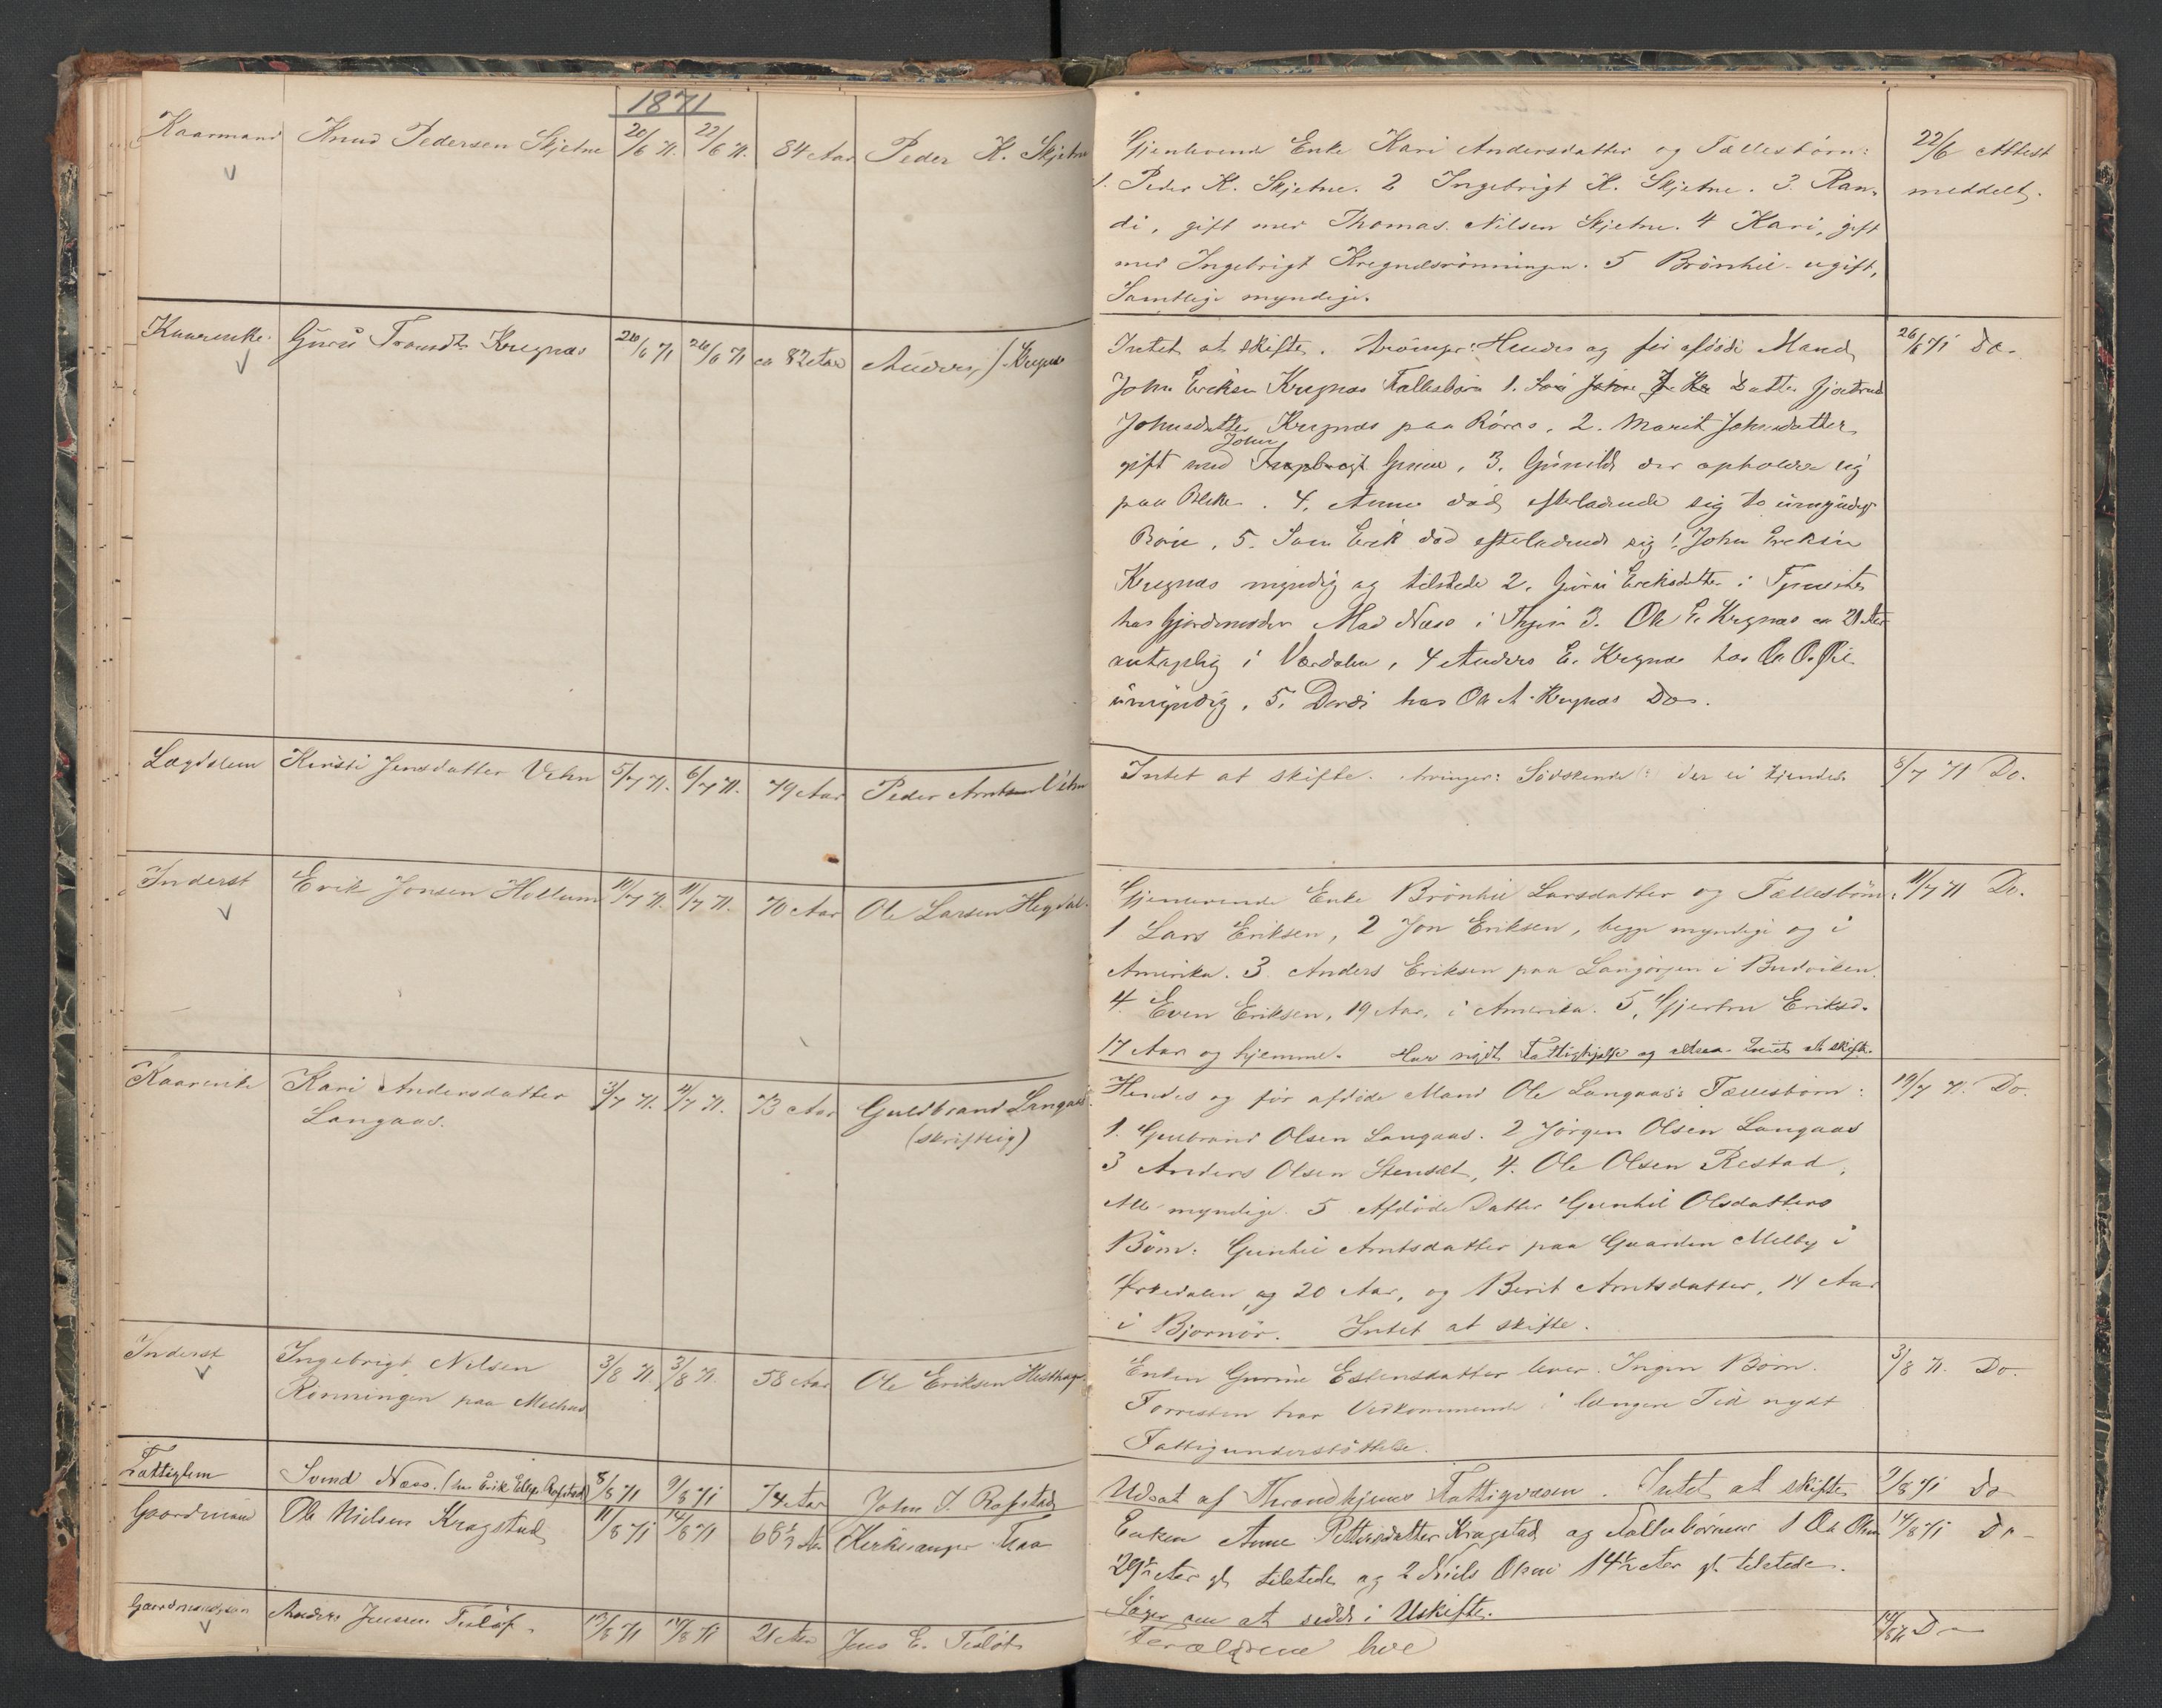 1871
Kaarmand Knud Pedersen Skjetne 20/6 71. 22/6 71. 84 Aar Peder K. Skjetne
Gjenlevend Enke Kari Andersdatter og Fællesbørn: 22/6 Attest
1. Peder K. Skjetne. 2 Ingebrigt K. Skjetne. 3. Ran- meddelt.
di, gift med Thomas Nilsen Skjetne. 4 Kari, gift
med Ingebrigt Kregnesrønningen. 5 Brønhil ugift,
Samtlige myndige.
Kaarenke Guru Kregnæs 26/6 71 26/6 71 ca 82 Aar Anders J. Kregnæs
Intet at skifte. Arvinger: Hendes og før afdøde Mand 26/6 71 Do.
John Ericksen Kregnæs Fællesbørn 1. Datter Gjertrud
Johnsdatter Kregnæs paa Røros, 2. Marit Johnsdatter
John
gift med Grinie, 3. Gunild der opholder sig
paa . 4. Anne død efterladende sig to umyndige
Børn, 5. Søn Erik død efterladende sig 1. John Ericksen
Kregnæs myndig og tilstede 2. Guru Ericksdatter i Tjeneste
hos Gjordemoder Mad Næss i 3. Ole E. Kregnæs ca 21 Aar
antagelig i Værdalen, 4 Anders E. Kregnæs hos Ole O.
umyndig, 5. Dordi hos Ole A. Kregnæs Do.
Lægdslem Kirsti Jensdatter Vehn 5/7 71. 6/7 71. 79 Aar Peder Arntsen Vehn
Intet at skifte. Arvinger: Sødskende der ei kjendes 8/7 71 Do.
Inderst Erik Jonsen Hollum 10/7 71. 11/7 71. 70 Aar Ole Larsen Hegdal.
Gjenlevende Enke Brønhil Larsdatter og Fællesbørn: 11/7 71 Do.
1 Lars Eriksen, 2 Jon Eriksen, begge myndige og i
Amerika. 3. Anders Eriksen paa Langørgen i Budviken.
4. Even Eriksen, 19 Aar, i Amerika. 5, Gjertru Eriksd.
17 Aar og hjemme. Har nydt Fattighjælp og altsaa Intet at skifte.
Kaarenke Kari Andersdatter 3/7 71. 4/7 71. 73 Aar Guldbrand Langaas.
Langaas. (skriftlig)
Hendes og før afdøde Mand Ole Langaas's Fællesbørn: 19/7 71. Do.
1. Gulbrand Olsen Langaas. 2 Jørgen Olsen Langaas
3 Anders Olsen Stensæt, 4. Ole Olsen Restad,
Alle myndige. 5 Afdøde Datter Gunhil Olsdatters
Børn: Gunhil Arntsdatter paa Gaarden Melby i
Orkedalen, og 20 Aar, og Berit Arntsdatter, 14 Aar
i Bjørnør. Intet at skifte.
Inderst Ingebrigt Nilsen 3/8 71. 3/8 71. 58 Aar Ole Eriksen
Rønningen paa Meehus
Enken Gurine Estensdatter lever. Ingen Børn. 3/8 71. Do.
Forresten har Vedkommende i længere Tid nydt
Fattigunderstøttelse.
Fattiglem Svend Næss. 8/8 71 9/8 71 74 Aar John J. Rofstad
Udsat af Throndhjems Fattigvæsen. Intet at skifte 9/8 71 Do
Gaardmand Ole Nielsen Kragstad 11/8 71 14/8 71 68½ Aar Kirkesanger
Enken Anne Pettersdatter Kragstad og Fællesbørnene 1 Ole Olsen 14/8 71 Do
29½ Aar gl. tilstede og 2 Niels Olsen 14½ Aar gl. tilstede.
Søger om at sidde i Uskifte.
Gaardmandssøn Anders Jensen Tesløf. 13/8 71 14/8 71 21 Aar Jens E. Tesløf
Forældrene leve 14/8 71 Do